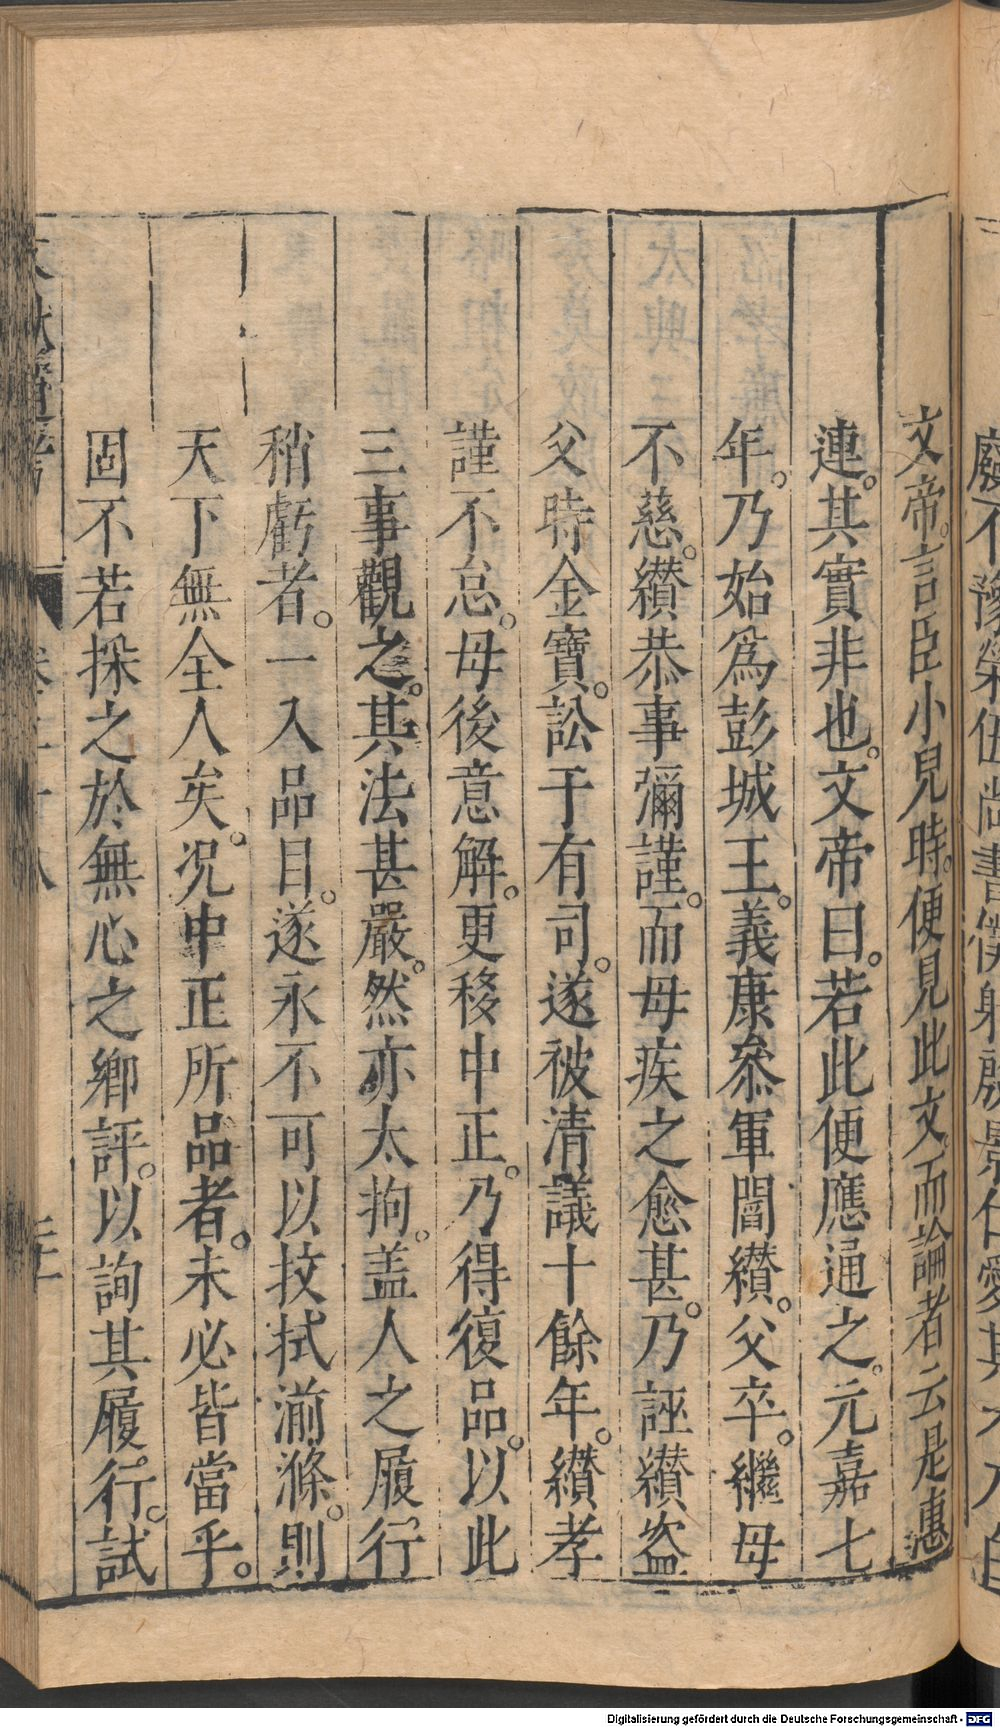 廢不豫榮伍尚書僕射殷景仁愛其才乃白
文帝。言臣小兒時。便見此文。而論者云是惠
連。其實非也。文帝曰。若此便應通之。元嘉七
年。乃始爲彭城王。義康叅軍閻纘。父卒。繼母
不慈。纘恭事彌謹。而母疾之愈甚。乃誣纘盗
父時金寶。訟于有司。遂被清議十餘年。纘孝
謹不怠。母後意解。更移中正。乃得復品。以此
三事觀之。其法甚嚴。然亦太拘。盖人之履行
稍虧者。一入品目。遂永不可以抆拭湔滌。則
天下無全人矣。况中正所品者。未必皆當乎。
固不若採之於無心之鄉評。以詢其履行。試
Digitalisierung gefördert durch die Deutsche Forschungsgemeinschaft - DFG